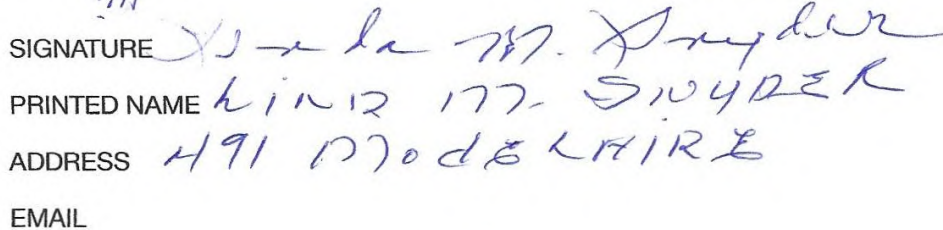 SIGNATURE Linda M. Snyder
PRINTED NAME LINDA M. SNYDER
ADDRESS 491 MOdELAIRE
EMAIL